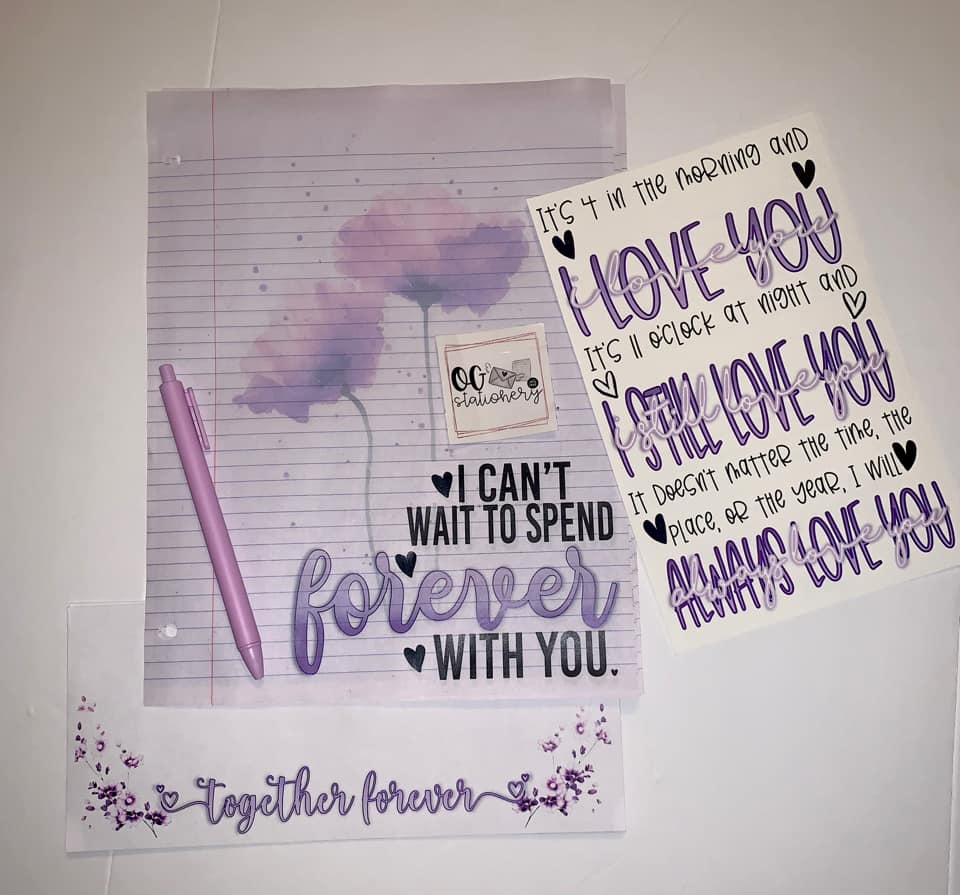 I CAN'T
WAIT TO SPEND
forever
WITH YOU.
OG's
stationery
together forever
It's 4 in the morning and
I LOVE YOU
i love you
It's 11 o'clock at night and
I STILL LOVE YOU
i still love you
It doesn't matter the time, the
place, or the year, I will
ALWAYS LOVE YOU
always love you